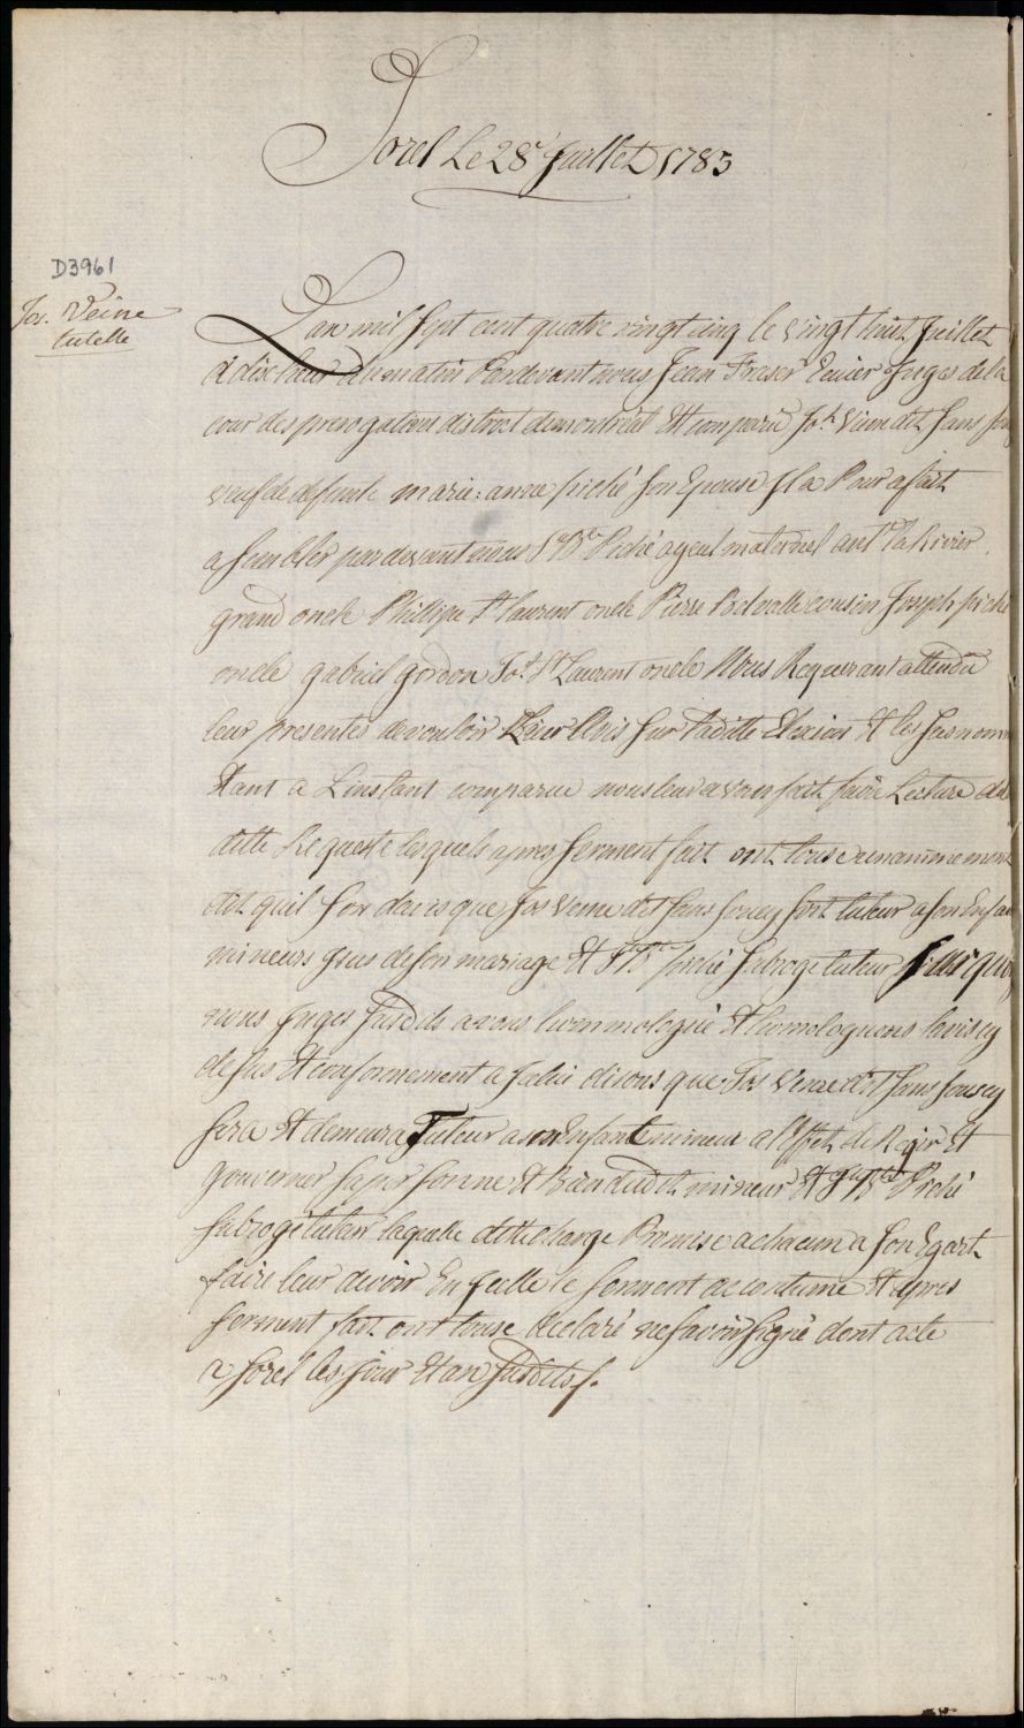 Sorel Le 28e Juillet 1785
D3961
Jos. Veine
tutelle
Lan mil sept cent quatre vingt cinq le vingt huit Juillet
a dix heur du matin Pardevant nous Jean Fraser Ecuier Juges de la
cour des prerogatives district demontréal Et comparu Jos. Veine dit Sans
veuf de defunte marie: anne piché son Epouse Sla Pour a fait
asembler par devant nous J Bte Piché ayeul maternel ant. La Rivier
grand oncle Phillipe St Laurent oncle Pierre cousin Joseph piché
oncle gabriel gordon Jos. St Laurent oncle Nous Requerant attendu
leur presentes devouloir Leur Avis sur Laditte Elexion Et les susnom
Etant a Linstant comparue nous leur avons fait faire Lecture de
ditte Requeste lesquels apres serment fait ont touse unanimement
dit quil son davis que Jos Veine dit Sans Soucy soit tuteur a son Enfan
mineurs Jsus deson mariage Et J Bte piché subroge tuteur surquoy
nous Juges susdits avons hommologué Et homologuons lavis cy
desus Et conformement a Jcelui disons que Jos Veine dit Sans Soucy
sera Et demeura Tuteur a son Enfant mineur a l'Effet de Regir Et
gouverner sa personne Et Bien dudit mineur Et J Bte Piché
subrogé tuteur laquelle ditte charge Promise a chacun a son Egart
faire leur devoir En Jcelle le serment accoutumé Et apres
serment fait ont touse declaré ne savoir signé dont acte
a Sorel les jour Et an susdits.